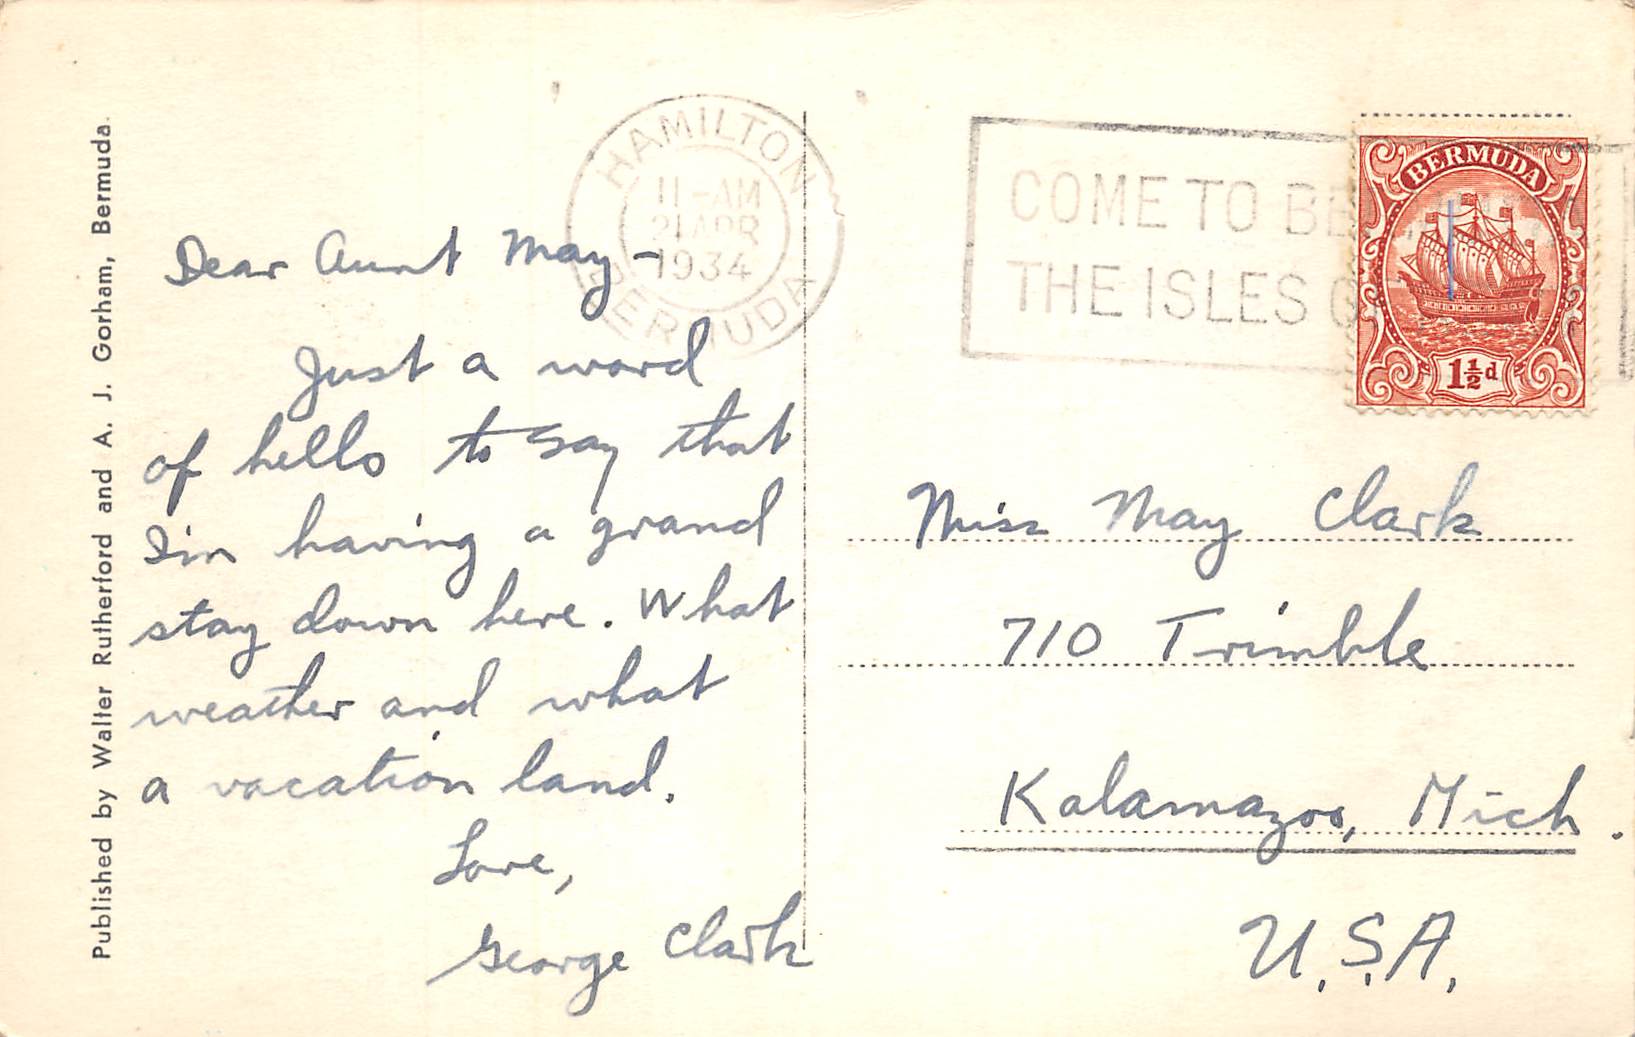 Published by Walter Rutherford and A. J. Gorham, Bermuda.
HAMILTON
11-AM
21 APR
1934
BERMUDA
COME TO
THE ISLES
BERMUDA
1½d
Dear Aunt May –
Just a word
of hello to say that
I'm having a grand
stay down here. What
weather and what
a vacation land.
Love,
George Clark
Miss May Clark
710 Trimble
Kalamazoo, Mich.
U.S.A.